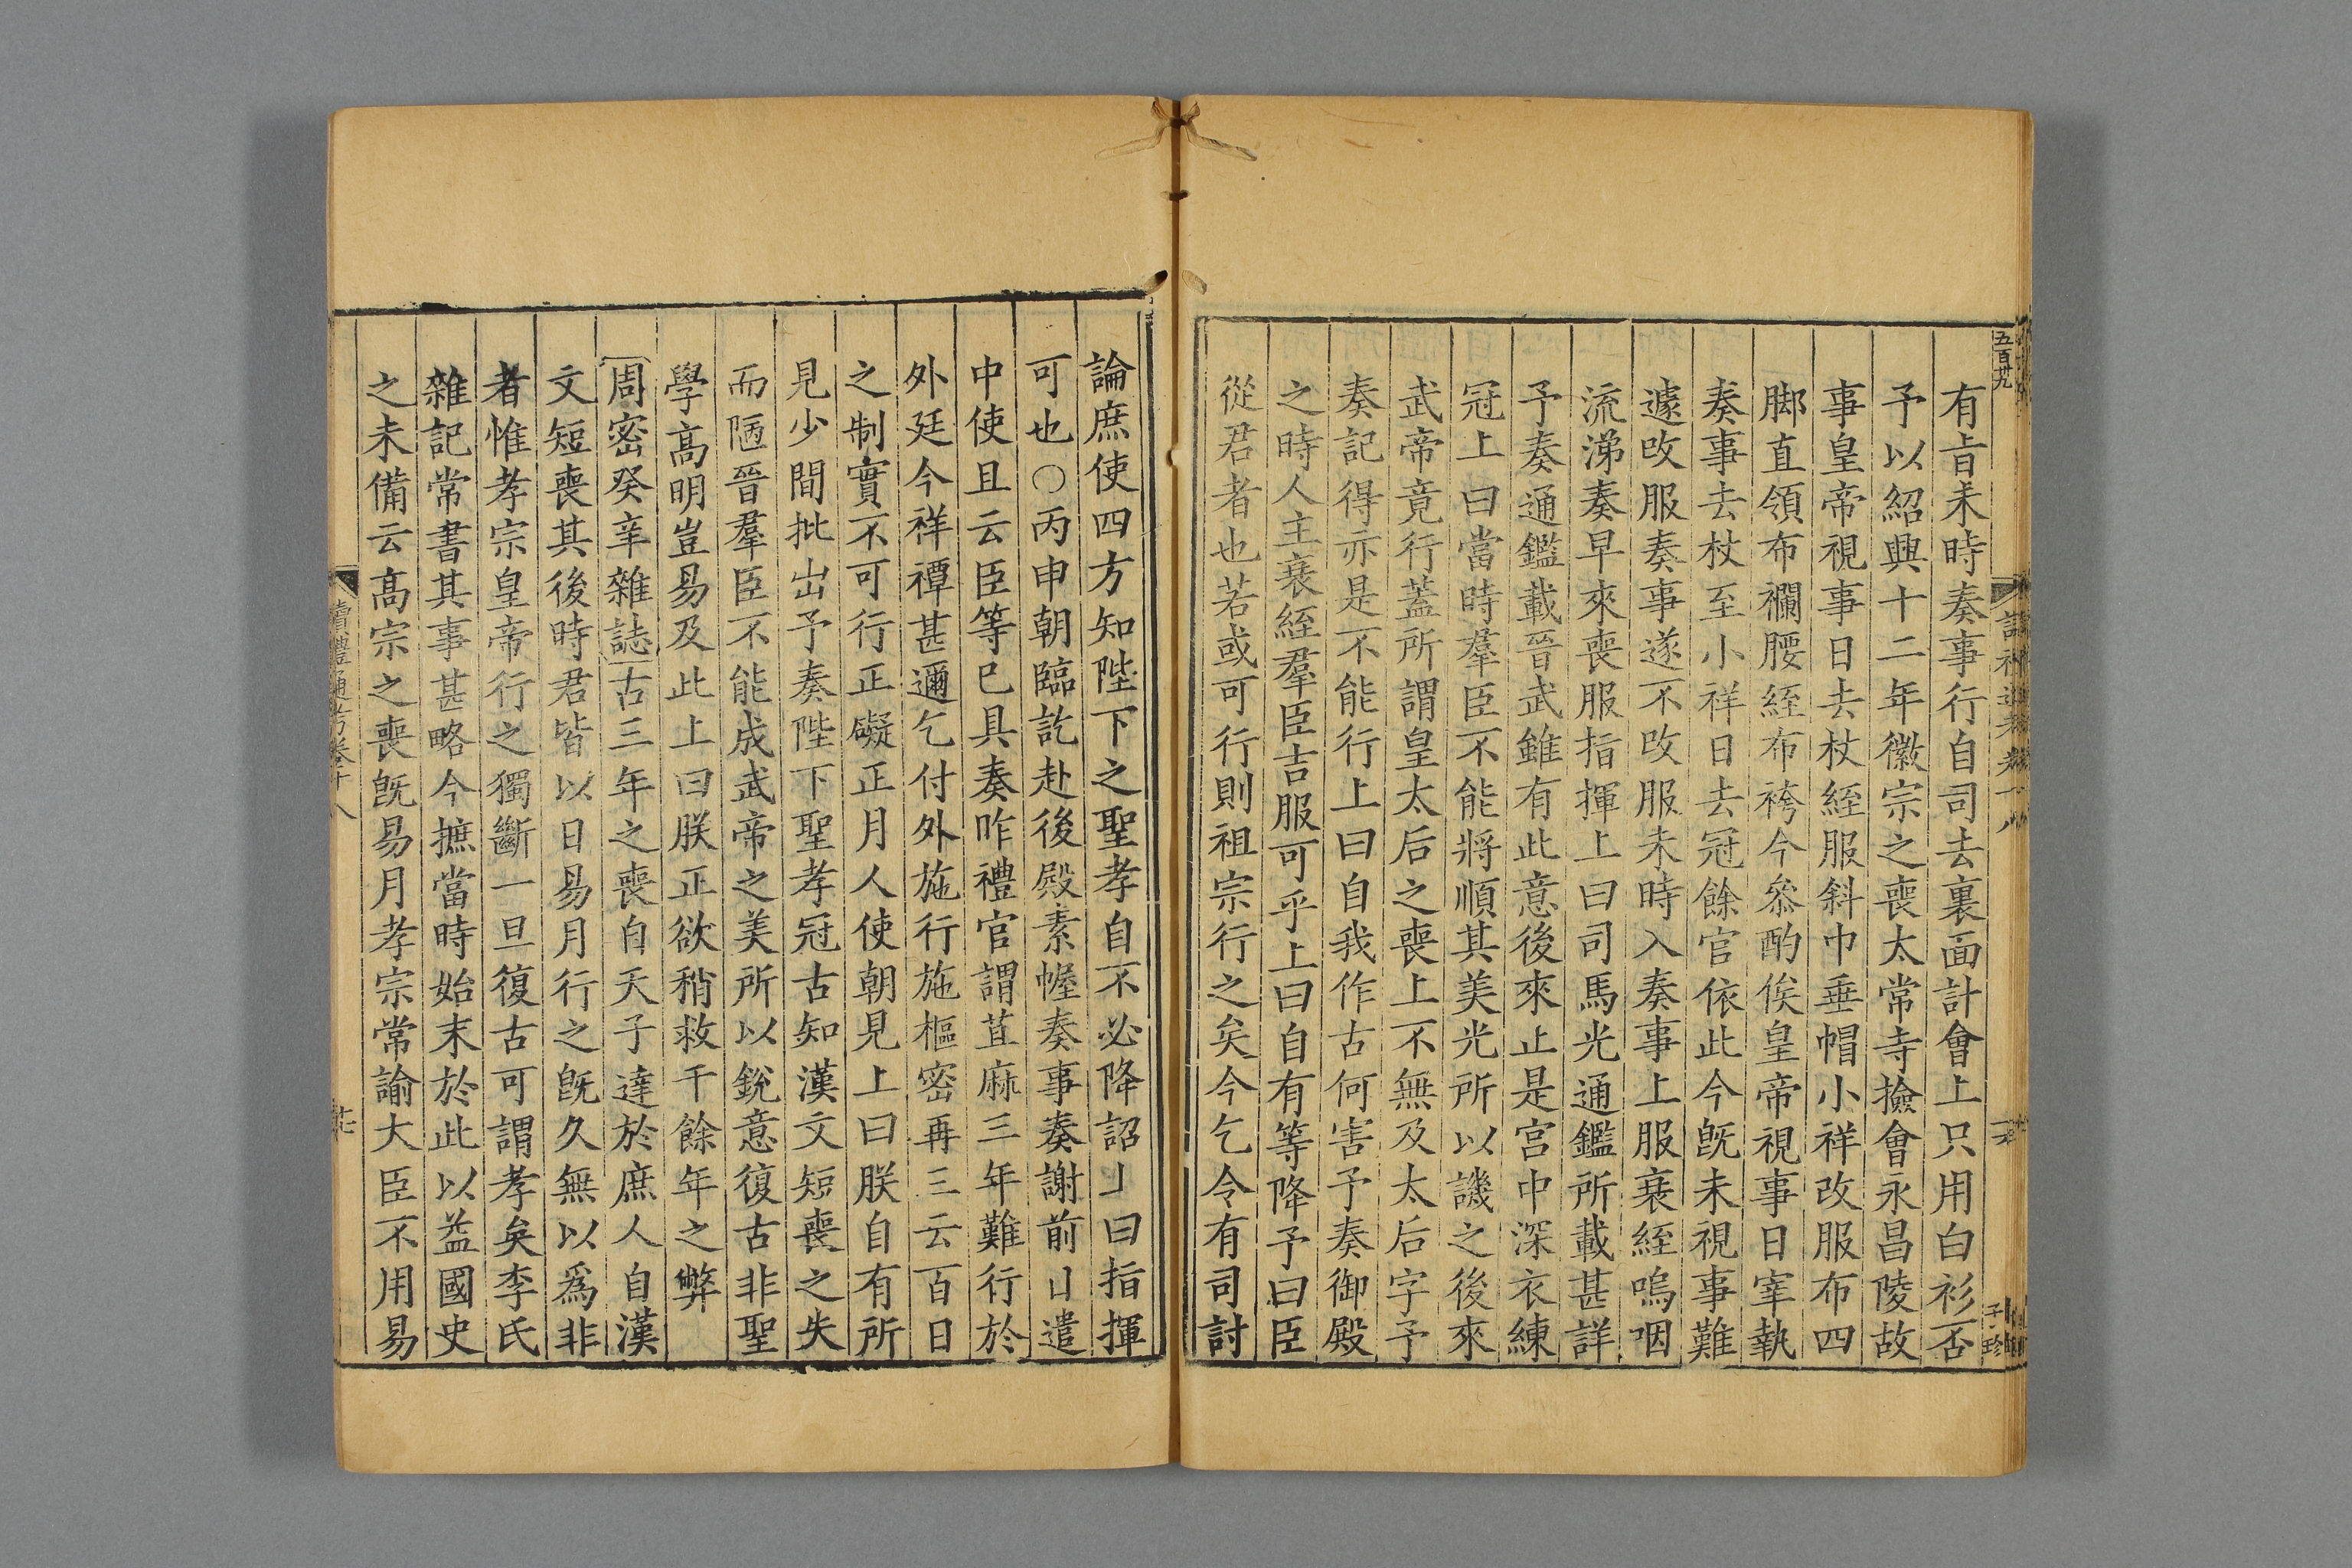 五百廿九
有旨未時奏事行自司去裏面計會上只用白衫否
予以紹興十二年徽宗之喪太常寺撿會永昌陵故
事皇帝視事日去杖絰服斜巾垂帽小祥改服布四
脚直領布襴腰絰布袴今叅酌俟皇帝視事日宰執
奏事去杖至小祥日去冠餘官依此今旣未視事難
遽改服奏事遂不改服未時入奏事上服衰絰嗚咽
流涕奏早來喪服指揮上曰司馬光通鑑所載甚詳
予奏通鑑載晉武雖有此意後來止是宮中深衣練
冠上曰當時羣臣不能將順其美光所以譏之後來
武帝竟行蓋所謂皇太后之喪上不無及太后字予
奏記得亦是不能行上曰自我作古何害予奏御殿
之時人主衰絰羣臣吉服可乎上曰自有等降予曰臣
從君者也若或可行則祖宗行之矣今乞令有司討
論庶使四方知陛下之聖孝自不必降詔上曰指揮
可也○丙申朝臨訖赴後殿素幄奏事奏謝前日遣
中使且云臣等已具奏昨禮官謂苴麻三年難行於
外廷今祥禫甚邇乞付外施行施樞密再三云百日
之制實不可行正礙正月人使朝見上曰朕自有所
見少間批出予奏陛下聖孝冠古知漢文短喪之失
而陋晉羣臣不能成武帝之美所以銳意復古非聖
學高明豈易及此上曰朕正欲稍救千餘年之弊
周密癸辛雜誌古三年之喪自天子達於庶人自漢
文短喪其後時君皆以日易月行之旣久無以爲非
者惟孝宗皇帝行之獨斷一旦復古可謂孝矣李氏
雜記常書其事甚略今摭當時始末於此以益國史
之未備云高宗之喪旣易月孝宗常諭大臣不用易
讀禮通考卷十八
廿七